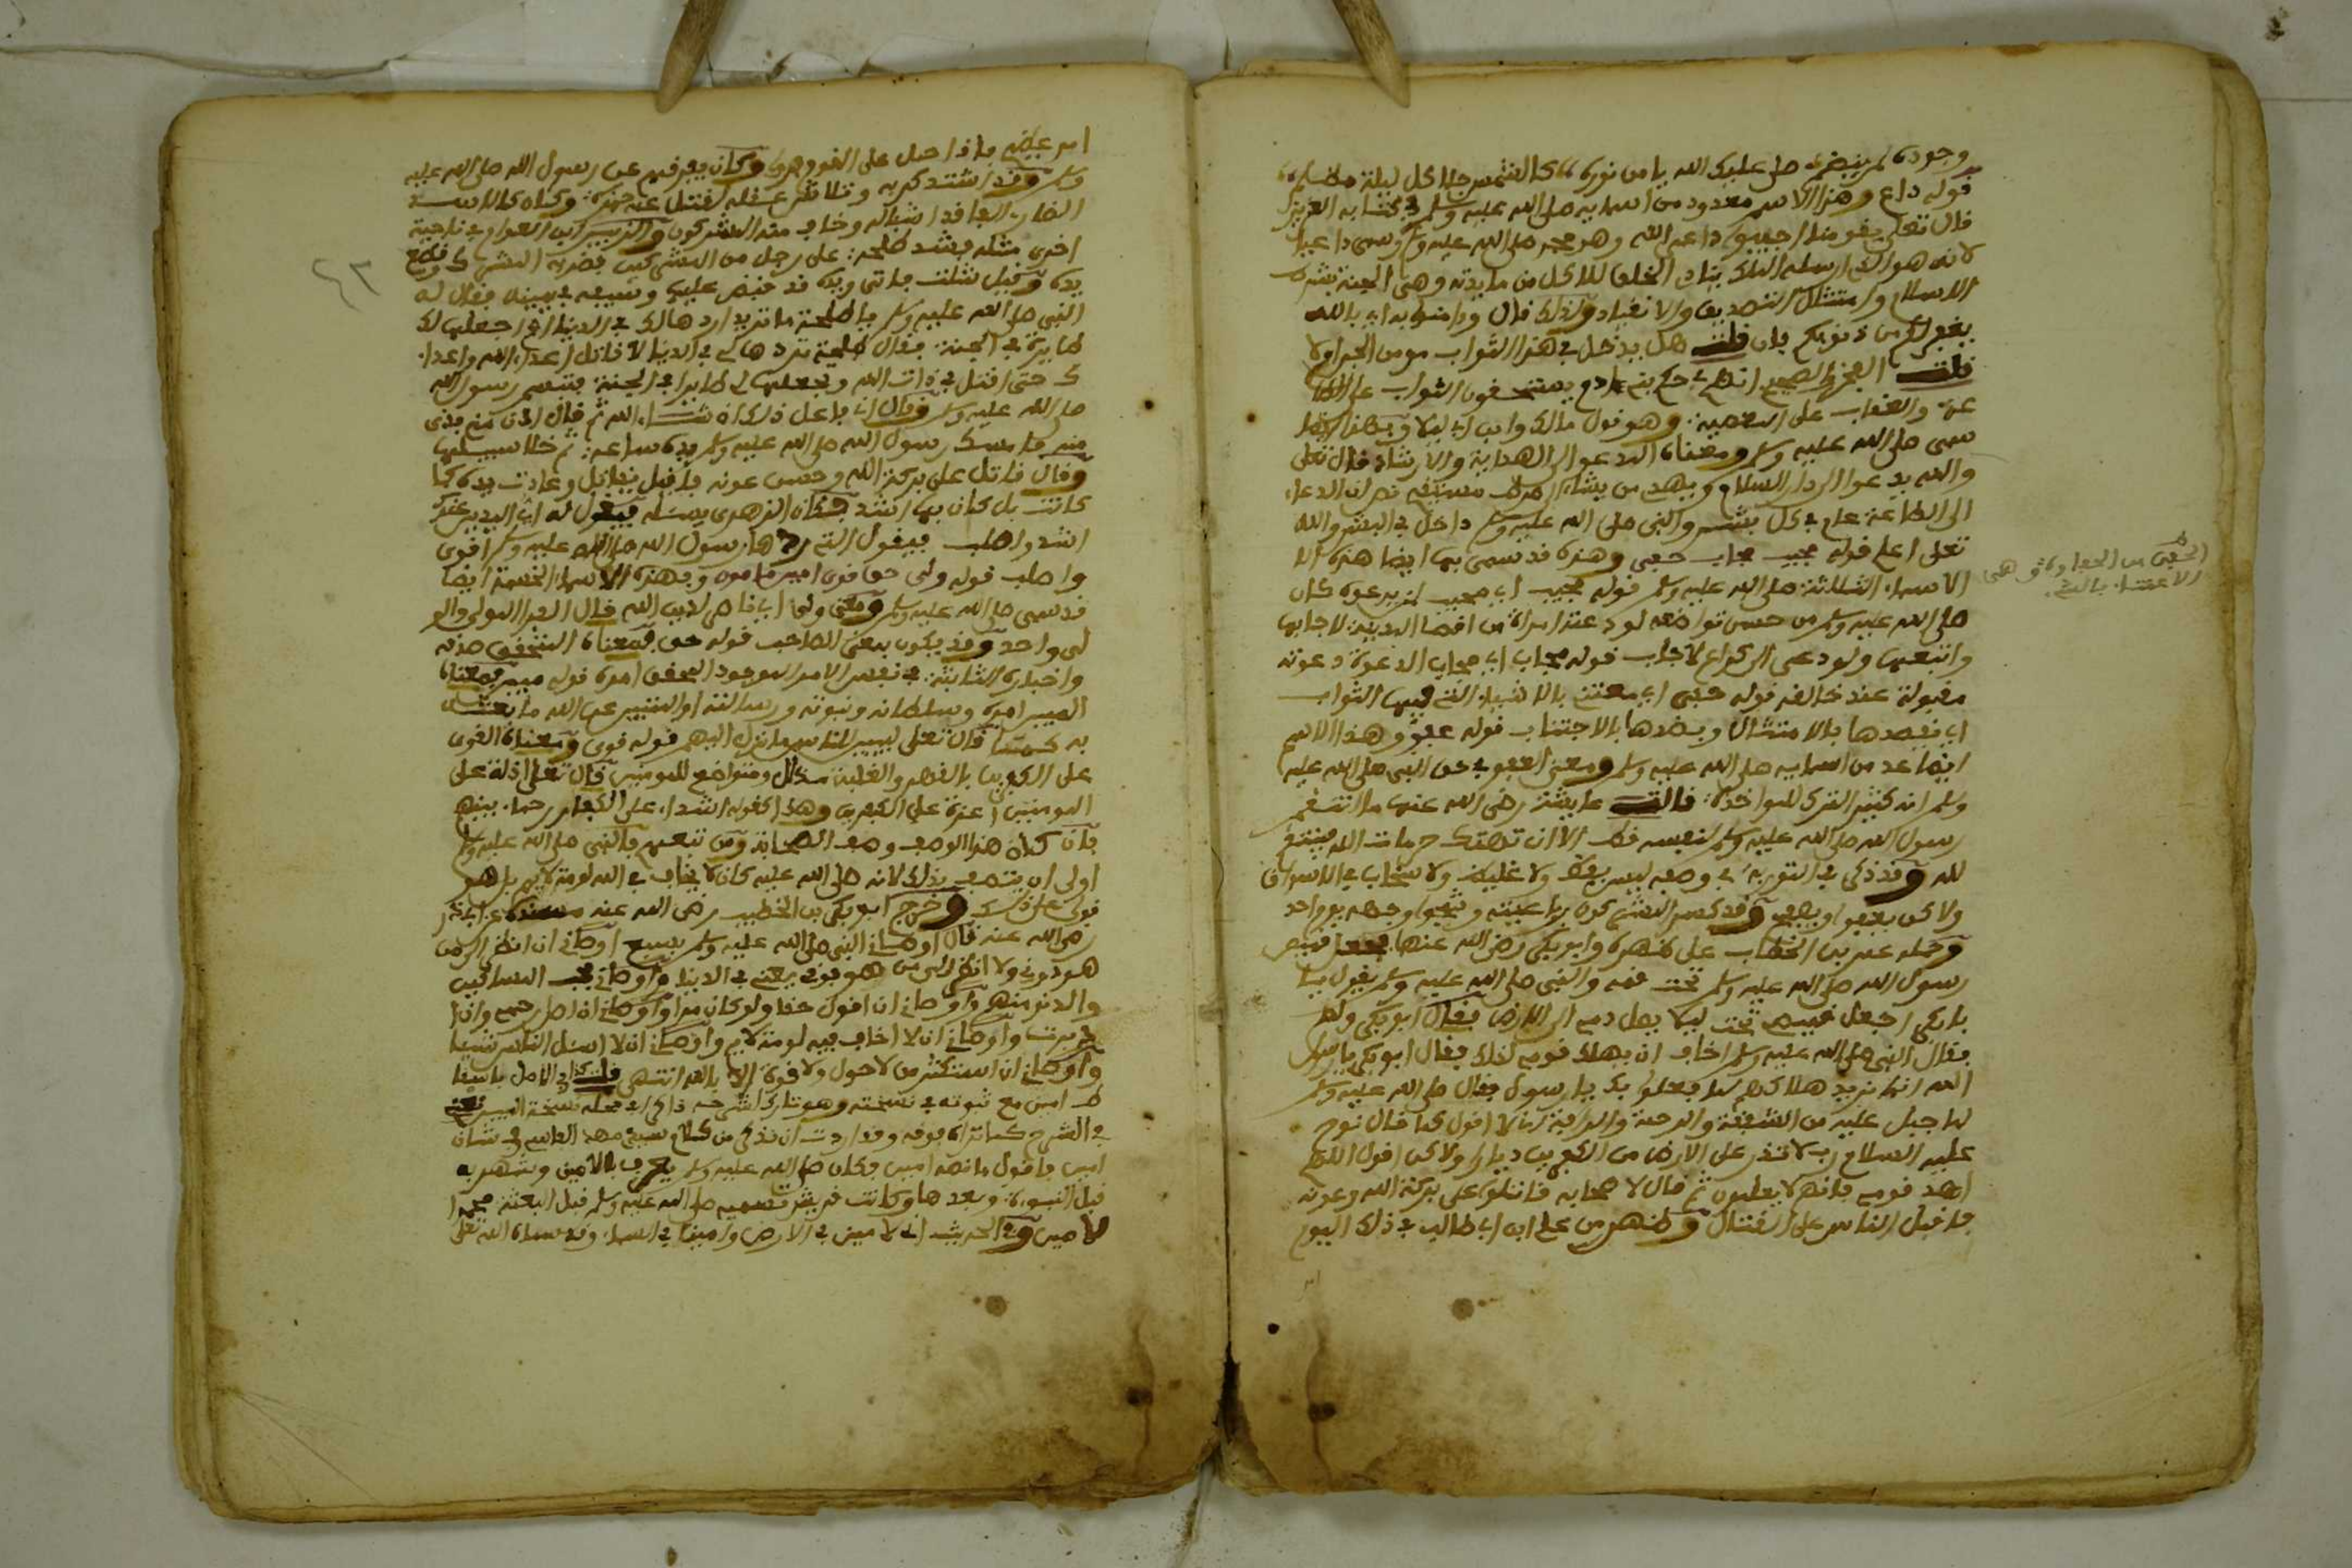 وجوده لم ينضره صلى عليك الله يا من نوره كالشمس جلا كل ليلة مظلم
قوله داع وهذا الاسم معدود من اسمايه صلى الله عليه وسلم في كتابه العزيز
قال تعلى يقومنا اجيبوا داعي الله وهو محمد صلى الله عليه وسلم وسمى داعيا
لانه هو الذي ارسله الملك ينادي الخلق للاكل من مايدته وهي الجنة بشرط
الاسلام وامتثال التصديق والانقياد ولذلك قال وءامنوا به اي بالله
يغفر لكم من ذنوبكم فان قلت هل يدخل في هذا الثواب مومن الجن اولا
قلت الصحيح انهم في حكم بني ءادم يستحقون الثواب على الطا
عة والعقاب على المعصية وهو قول مالك وابن ابي ليلا
سمى صلى الله عليه وسلم ومعناه المدعوا الى الهداية والارشاد قال تعلى
والله يدعوا الى دار السلام ويهدي من يشاء الى صراط مستقيم ثم ان الدعاء
الى الطاعة عام في كل بشر والنبي صلى الله عليه وسلم داخل في البشر والله
تعلى اعلم قوله مجيب مجاب حفي وهذه قد سمى بها ايضا هذه الا
الاسماء الثلاثة صلى الله عليه وسلم قوله مجيب اي مجيب لمن يدعوه كان
صلى الله عليه وسلم من حسن تواضعه لو دعته امراة من اقصا المدينة لاجابها
واتبعها ولو دعي الى كراع لاجاب قوله مجاب اي مجاب الدعوة دعوته
مقبولة عند خالقه قوله حفي اي معتن بالاشياء التي فيها الثواب
اي يقصدها بالامتثال وبضدها بالاجتناب قوله عفو وهذا الاسم
ايضا عد من اسمايه صلى الله عليه وسلم ومعنى العفو في حق النبي صلى الله عليه
وسلم انه كثير الترك للمواخذة قالت عايشة رضي الله عنها ما انتقم
رسول الله صلى الله عليه وسلم لنفسه قط الا ان تهتك حرمات الله فينتقم
لله وقد ذكر في التورية في وصفه ليس بفظ ولا غليظ ولا سخاب في الاسواق
ولاكن يعفو او يصفح وقد كسر المشركون رباعيته وشجوا وجهه يوم احد
وحمله عمر بن الخطاب على ظهره وابو بكر رضي الله عنهما يجعل قميص
رسول الله صلى الله عليه وسلم تحت فمه والنبي صلى الله عليه وسلم يقول يا
با بكر اجعل قميصي تحت ليلا يصل دمي الى الارض فقال ابو بكر ولم
فقال النبي صلى الله عليه وسلم اخاف ان يهلك قومي لذلك فقال ابو بكر يا رسول
الله انما نريد هلاكهم لما فعلوا بك يا رسول فقال صلى الله عليه وسلم
لما جبل عليه من الشفقة والرحمة والرافة انا لا اقول كما قال نوح
عليه السلام رب لا تذر على الارض من الكفرين ديارا ولاكن اقول اللهم
اهد قومي فانهم لا يعلمون ثم قال لاصحابه قاتلوا على بركة الله وعونه
فاقبل الناس على القتال وظهر من علي ابن ابي طالب في ذلك اليوم
الحفي من الحفاوة وهي
الاعتناء بالشيء
امر عظيم ماذا حمل على القوم وكان يفرقهم عن رسول الله صلى الله عليه
وسلم وقد اشتد كربه وتلاشى عقله لقتل عمه حمزة وكان كالاسد
الضاري الفاقد اشباله وخاف منه المشركون والزبير ابن العوام في ناحية
اخرى مثله فشد طلحة على رجل من المشركين فضربه المشرك وقطع
يده وقيل شلت فاتى ويده قد قبض عليها وسيفه في يمينه فقال له
النبي صلى الله عليه وسلم يا طلحة ما تريد اردها لك في الدنيا ام اجعلها لك
طايرة في الجنة فقال طلحة تردها لي في الدنيا لاقاتل اعداء الله واعداء
ك حتى اقتل في ذات الله وتجعلها لي طايرا في الجنة فتبسم رسول الله
صلى الله عليه وسلم وقال اني فاعل ذلك ان شاء الله ثم قال ادن مني فدنى
منه فامسك رسول الله صلى الله عليه وسلم يده ساعة ثم خلا سبيلها
وقال قاتل على بركة الله وحسن عونه فاقبل يقاتل وعادت يده كما
كانت بل كان بها اشد وكان الزهري يسئله فيقول له اي اليدين عندك
اشد واصلب فيقول التي ردها رسول الله صلى الله عليه وسلم اقوى
واصلب قوله ولي حق قوي امين مامون وبهذه الاسماء الخمسة ايضا
قد سمى صلى الله عليه وسلم ومعنى ولي اي ناصر لدين الله قال الفرا المولى والو
لي واحد وقد يكون بمعنى الصاحب قوله حق فمعناه المتحقق صدقه
واخباره الثابتة في نفس الامر الموجود المحقق امره قوله مبين فمعناه
المبين امره وسلطانه ونبوته ورسالته او المبين عن الله ما بعثه
به كما قال تعلى ليبين للناس ما نزل اليهم قوله قوي ومعناه القوي
على الكفرين بالقهر والغلبة متذلل ومتواضع للمومنين قال تعلى اذلة على
المومنين اعزة على الكفرين وهذا كقوله اشداء على الكفار رحماء بينهم
فان كان هذا الوصف وصف الصحابة ومن تبعهم فالنبي صلى الله عليه وسلم
اولى ان يتصف بذلك لانه صلى الله عليه كان لا يخاف في الله لومة لايم بل هو
قوي على ذلك وخرج ابو بكر بن الخطيب رضي الله عنه مسندا عن ابي ذر
رضي الله عنه قال اوصاني النبي صلى الله عليه وسلم بسبع اوصاني ان انظر الى من
هو دوني ولا انظر الى من هو فوقي يعني في الدنيا واوصاني بحب المساكين
والدنو منهم واوصاني ان اقول حقا ولو كان مرا واوصاني ان اصل رحمي وان
ادبرت واوصاني ان لا اخاف فيه لومة لايم واوصاني ان لا اسئل الناس شيئا
واوصاني ان استكثر من لا حول ولا قوة الا بالله انتهى قلت في الاصل باسقا
ط امين مع ثبوته في نسخته وهو شارح
في الشرح كما تراه فوقه وقد اردت ان نذكر من كلام سيدي مهدي الفاسي في شان
امين فاقول ما نصه امين فكان صلى الله عليه وسلم يعرف بالامين وشهر به
قبل النبوة وبعدها وكانت قريش تسميه صلى الله عليه وسلم قبل البعثة محمد ا
لامين وفي الحديث اني لامين في الارض وامين في السماء وقد سماه الله تعلى
٤٢